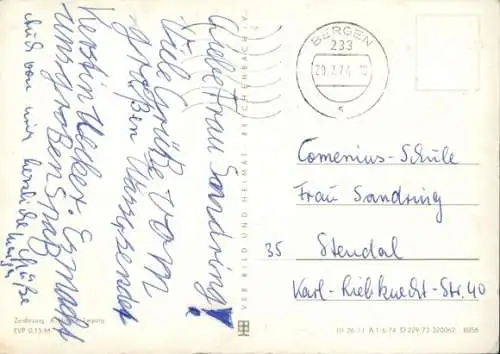 Liebe Frau Sandring!
Viele Grüße vom
großen Uelsersender
Kerstin Uecker. Es macht
uns großen Spaß
Auch von mir herzliche Grüße
BERGEN
233
Comenius-Schule
Frau Sandring
35 Stendal
Karl-Liebknecht-Str. 40
VEB BILD UND HEIMAT REICHENBACH V.
Leipzig
EVP 0,15 M
III 26-13 A 1-6-74 D 229/73 320062 8856